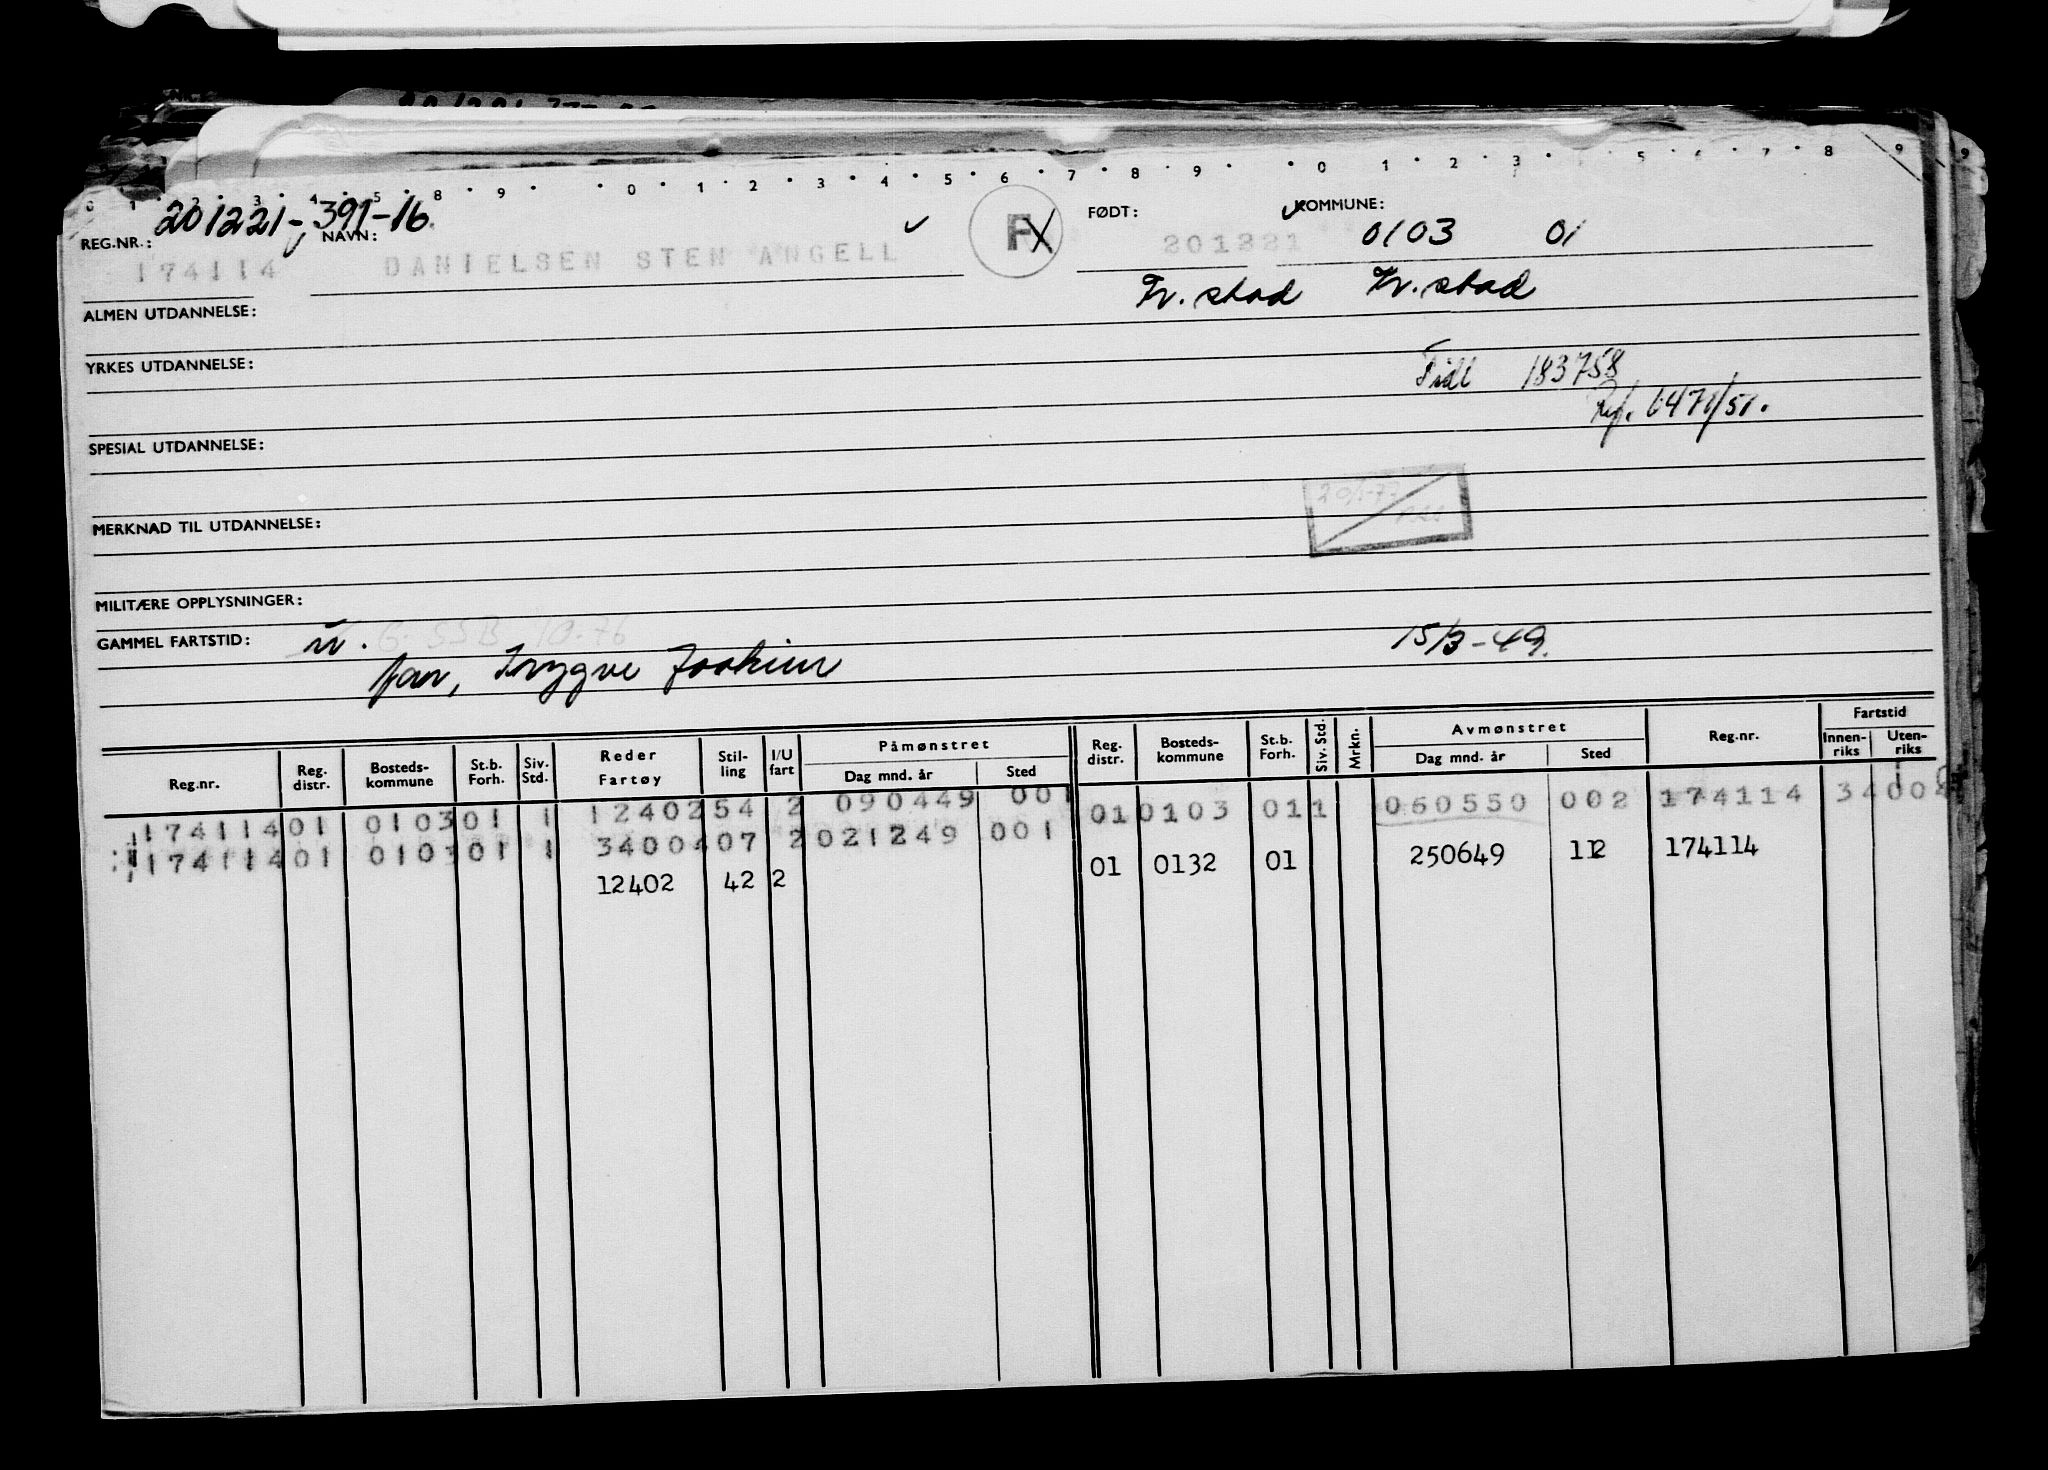 0 1 2 3 4 5 8 9 0 1 2 3 4 5 6 7 8 9 0 1 2 3 5 6 7 8 9
201221-391-16.
REG.NR.: NAVN: FX FØDT: KOMMUNE:
174114 DANIELSEN STEN ANGELL 201221 0103 01
Fr.stad Fr.stad
ALMEN UTDANNELSE:
YRKES UTDANNELSE:
Tidl 183758
Ref. 6471/51.
SPESIAL UTDANNELSE:
MERKNAD TIL UTDANNELSE:
MILITÆRE OPPLYSNINGER:
GAMMEL FARTSTID: G. SSB 10-76 15/3-49.
far, Trygve Joakim
Reg.nr. Reg. distr. Bosteds-kommune St.b. Forh. Siv. Std. Reder Fartøy Stil-ling I/U fart Påmønstret Dag mnd. år Sted Reg. distr. Bosteds-kommune St.b. Forh. Siv. Std. Mrkn. Avmønstret Dag mnd. år Sted Reg.nr. Fartstid Innen-riks Uten-riks
174114 01 0103 01 1 12402 54 2 090449 001 01 0103 01 1 060550 002 174114 34008
174114 01 0103 01 1 34004 07 2 021249 001 01 0132 01 250649 112 174114
12402 42 2